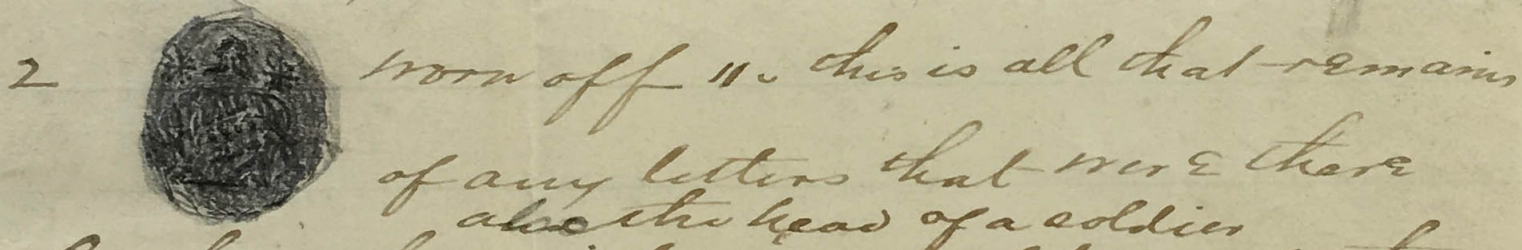 2 worn off ". this is all that remains
of any letters that were there
also the head of a soldier